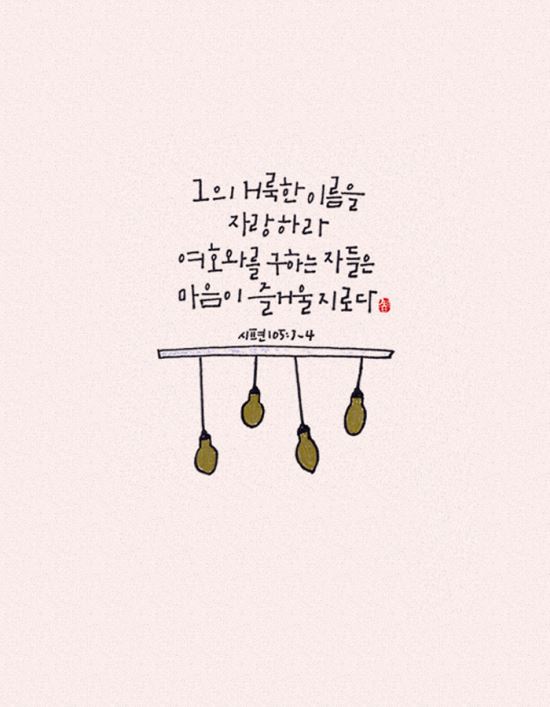 그의 거룩한 이름을
자랑하라
여호와를 구하는 자들은
마음이 즐거울지로다
시편105:3~4